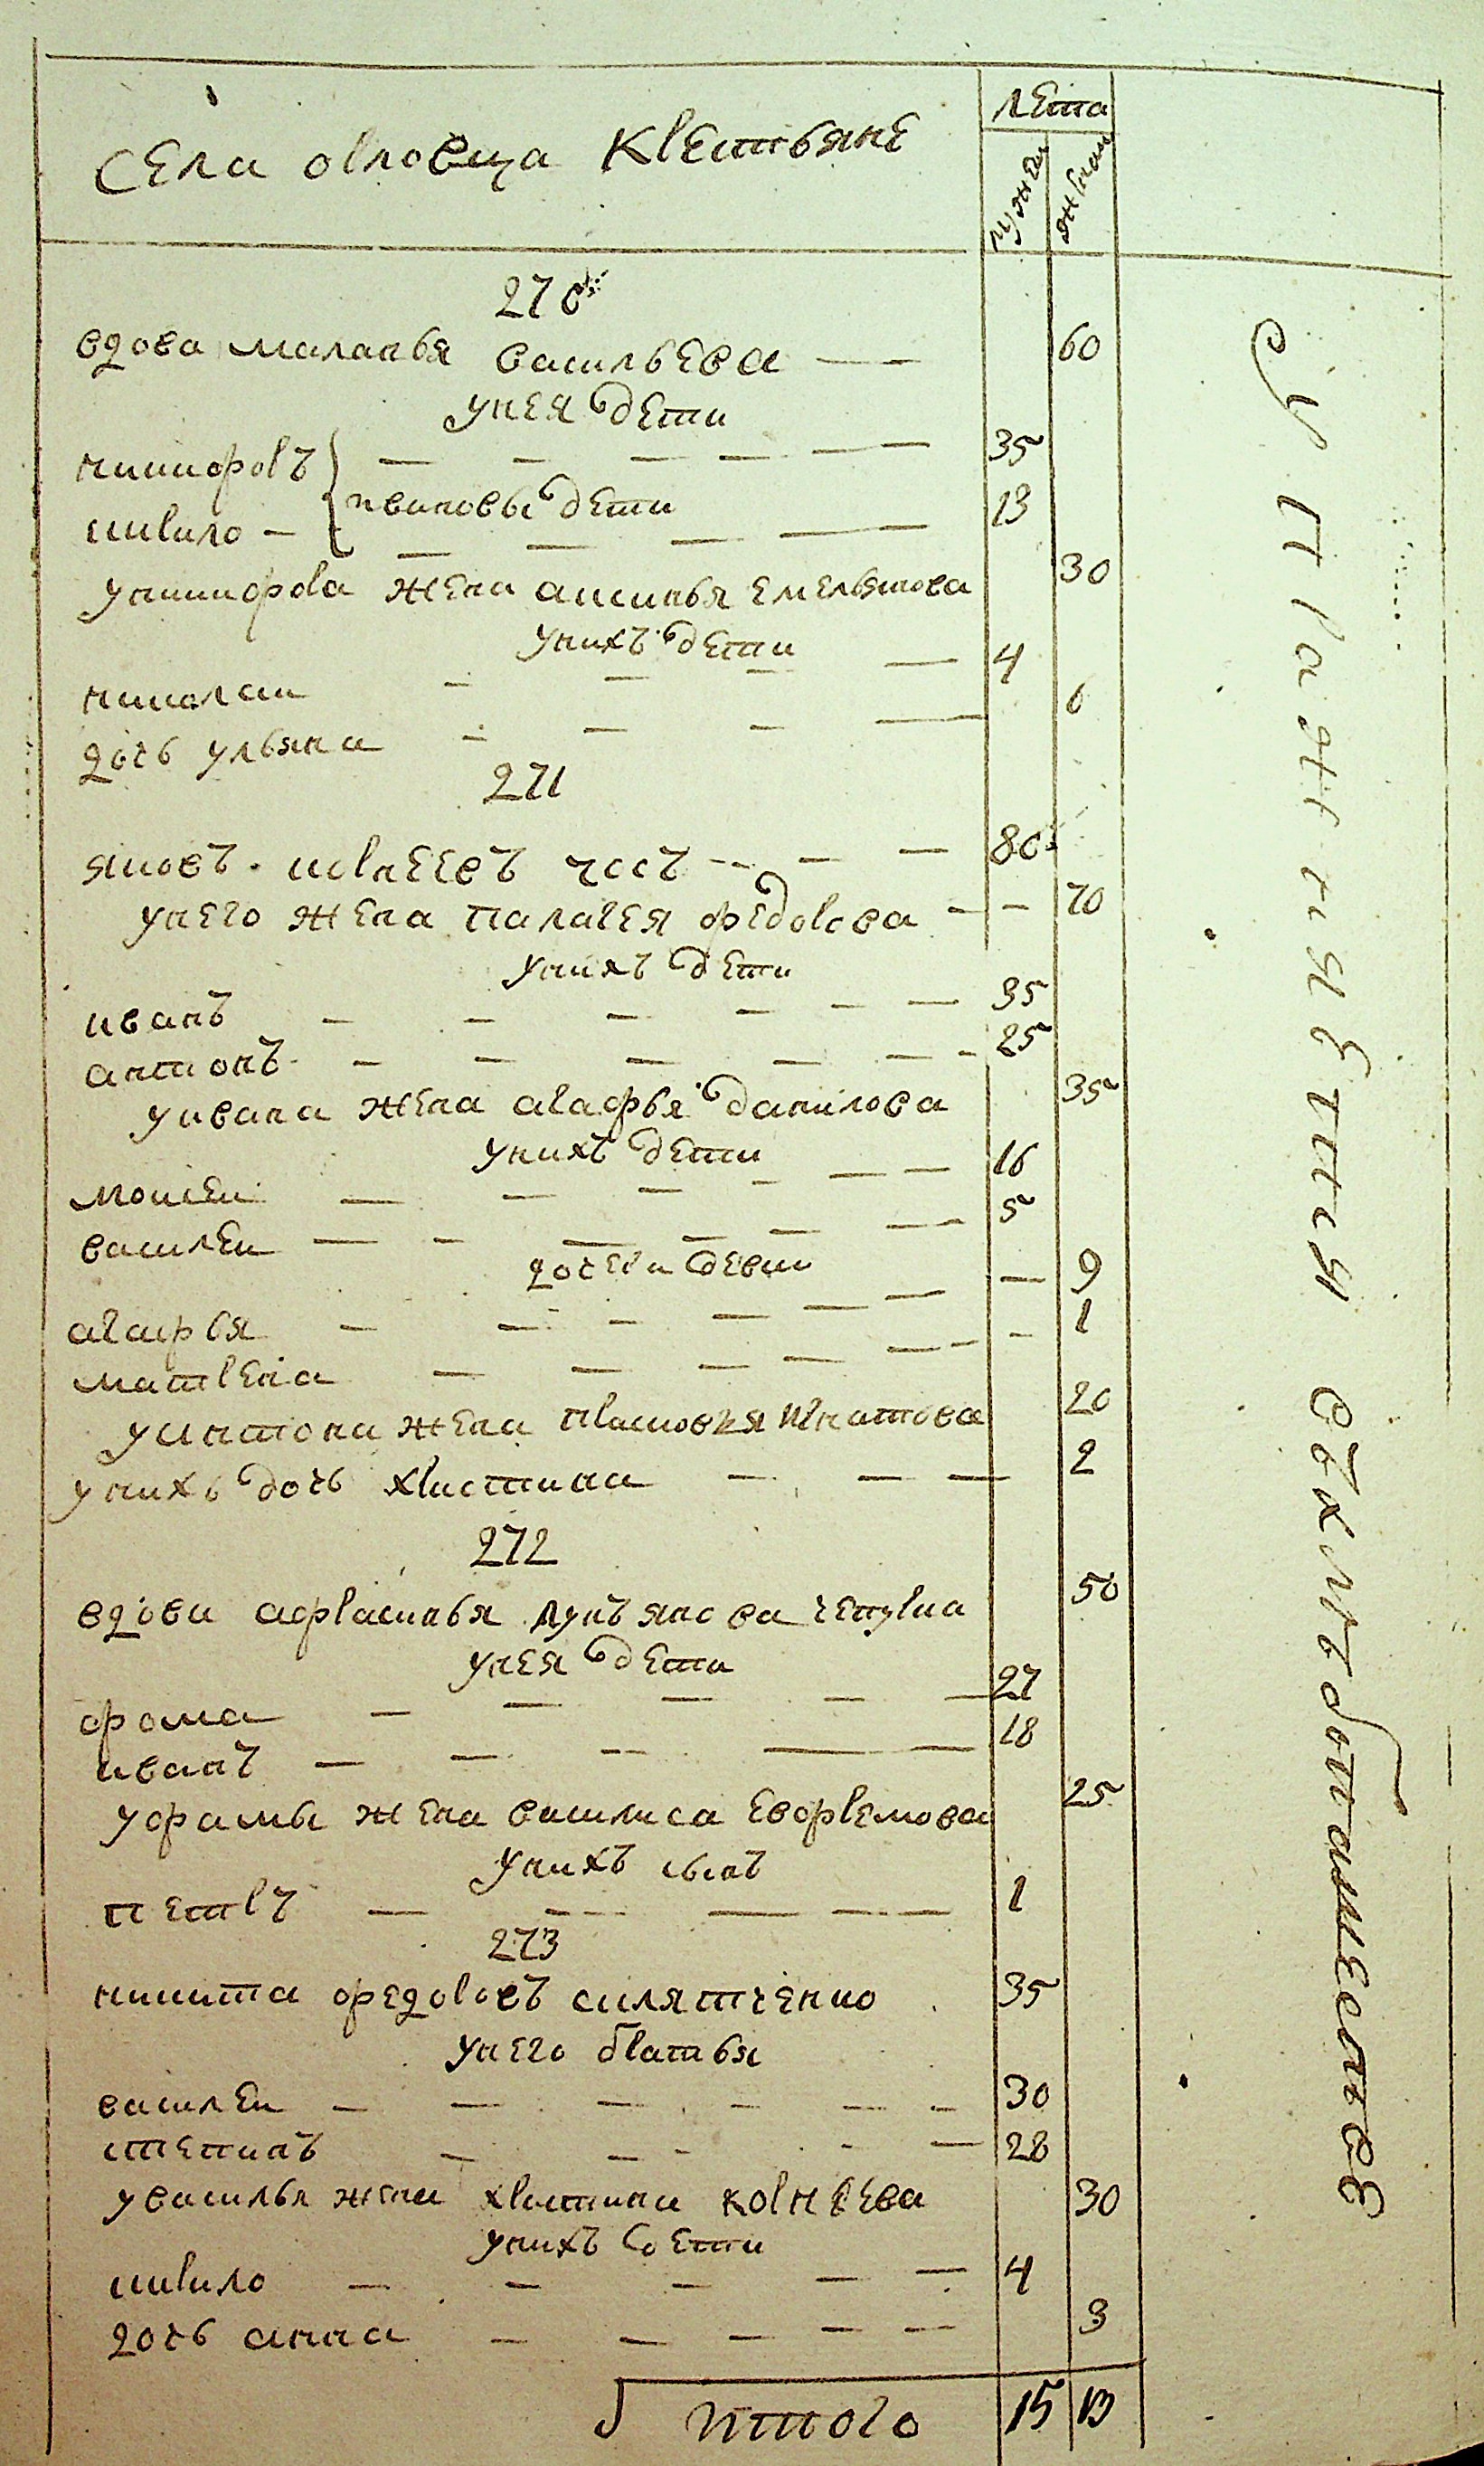 Села олховца крестьяне
лета
мужеи
женъи
270
вдова маланья васильева 60
унея дети
никифоръ 35
ивановы дети
кирило 13
уникифора жена аксинья емельянова 30
унихъ дети
николаи 4
дочь ульяна 6
271
яковъ корнеевъ чосъ 80
унего жена палагея федорова 70
унихъ дети
иванъ 35
антонъ 25
уивана жена агафья данилова 35
унихъ дети
моисеи 16
василеи 5
дочери девки
агафья 9
матрена 1
уантона жена прасковья игнатова 20
унихъ дочь христина 2
272
вдова афрасинья лукъянова чепурна 50
унея дети
фома 27
иванъ 18
уфомы жена василиса евфремова 25
унихъ сынъ
петръ 1
273
никита федоровъ силятченко 35
унего братья
василеи 30
степанъ 28
увасилья жена христина корнеева 30
унихъ дети
кирило 4
дочь анна 3
итого 15 13